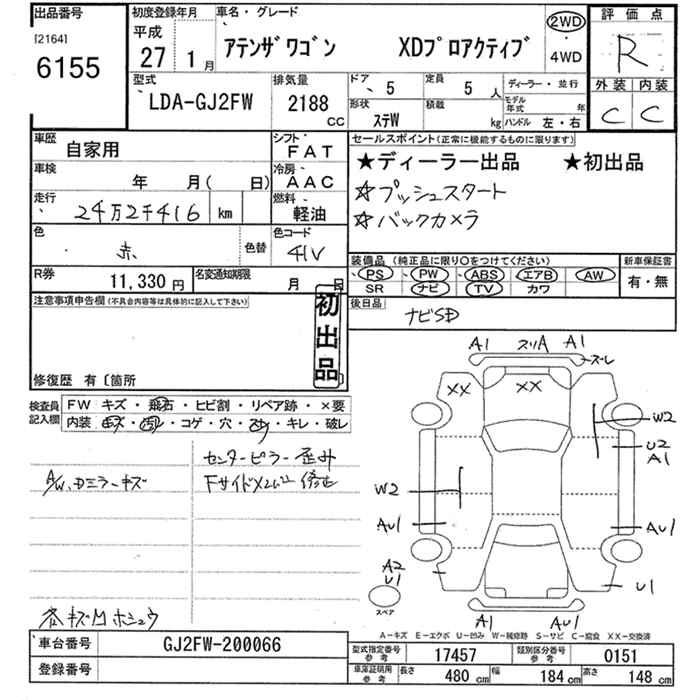 出品番号
[2164]
6155
初度登録年月
平成
27 1月
車名・グレード
アテンザワゴン XDプロアクティブ
2WD
・
4WD
評価点
R
外装 内装
C C
型式
LDA-GJ2FW
排気量
2188
cc
ドア
5
定員
5人
ディーラー・並行
形状
ステW
積載
kg
モデル年式 年
ハンドル 左・右
車歴
自家用
シフト
FAT
車検
年 月( 日)
冷房
AAC
走行
24万2千416 km
燃料
軽油
色
赤
色替
色コード
41V
R券
11,330 円
名変通知期限
月 日
セールスポイント(正常に機能するものに限ります)
★ディーラー出品 ★初出品
☆プッシュスタート
☆バックカメラ
装備品 (純正品に限り〇をつけてください)
新車保証書
PS PW ABS エアB AW
SR ナビ TV カワ
有・無
後日品
ナビSD
注意事項申告欄(不具合内容等は具体的に記入して下さい)
初出品
修復歴 有〔箇所
検査員記入欄
FW キズ・飛石・ヒビ割・リペア跡・×要
内装・キズ・汚れ・コゲ・穴・スレ・キレ・破レ
センターピラー歪み
A/W、Dミラーキズ
修正
キズM ホシュウ
A1 スリA A1
ズレ
XX XX
W2
U2
A1
W2
AU1 AU1
A2
U1
U1
スペア
A1 AU1
A-キズ E-エクボ U-凹み W-補修跡 S-サビ C-腐食 XX-交換済
車台番号
GJ2FW-200066
登録番号
型式指定番号
参考
17457
類別区分番号
参考
0151
車庫証明用
参考
長さ 480 cm 幅 184 cm 高さ 148 cm